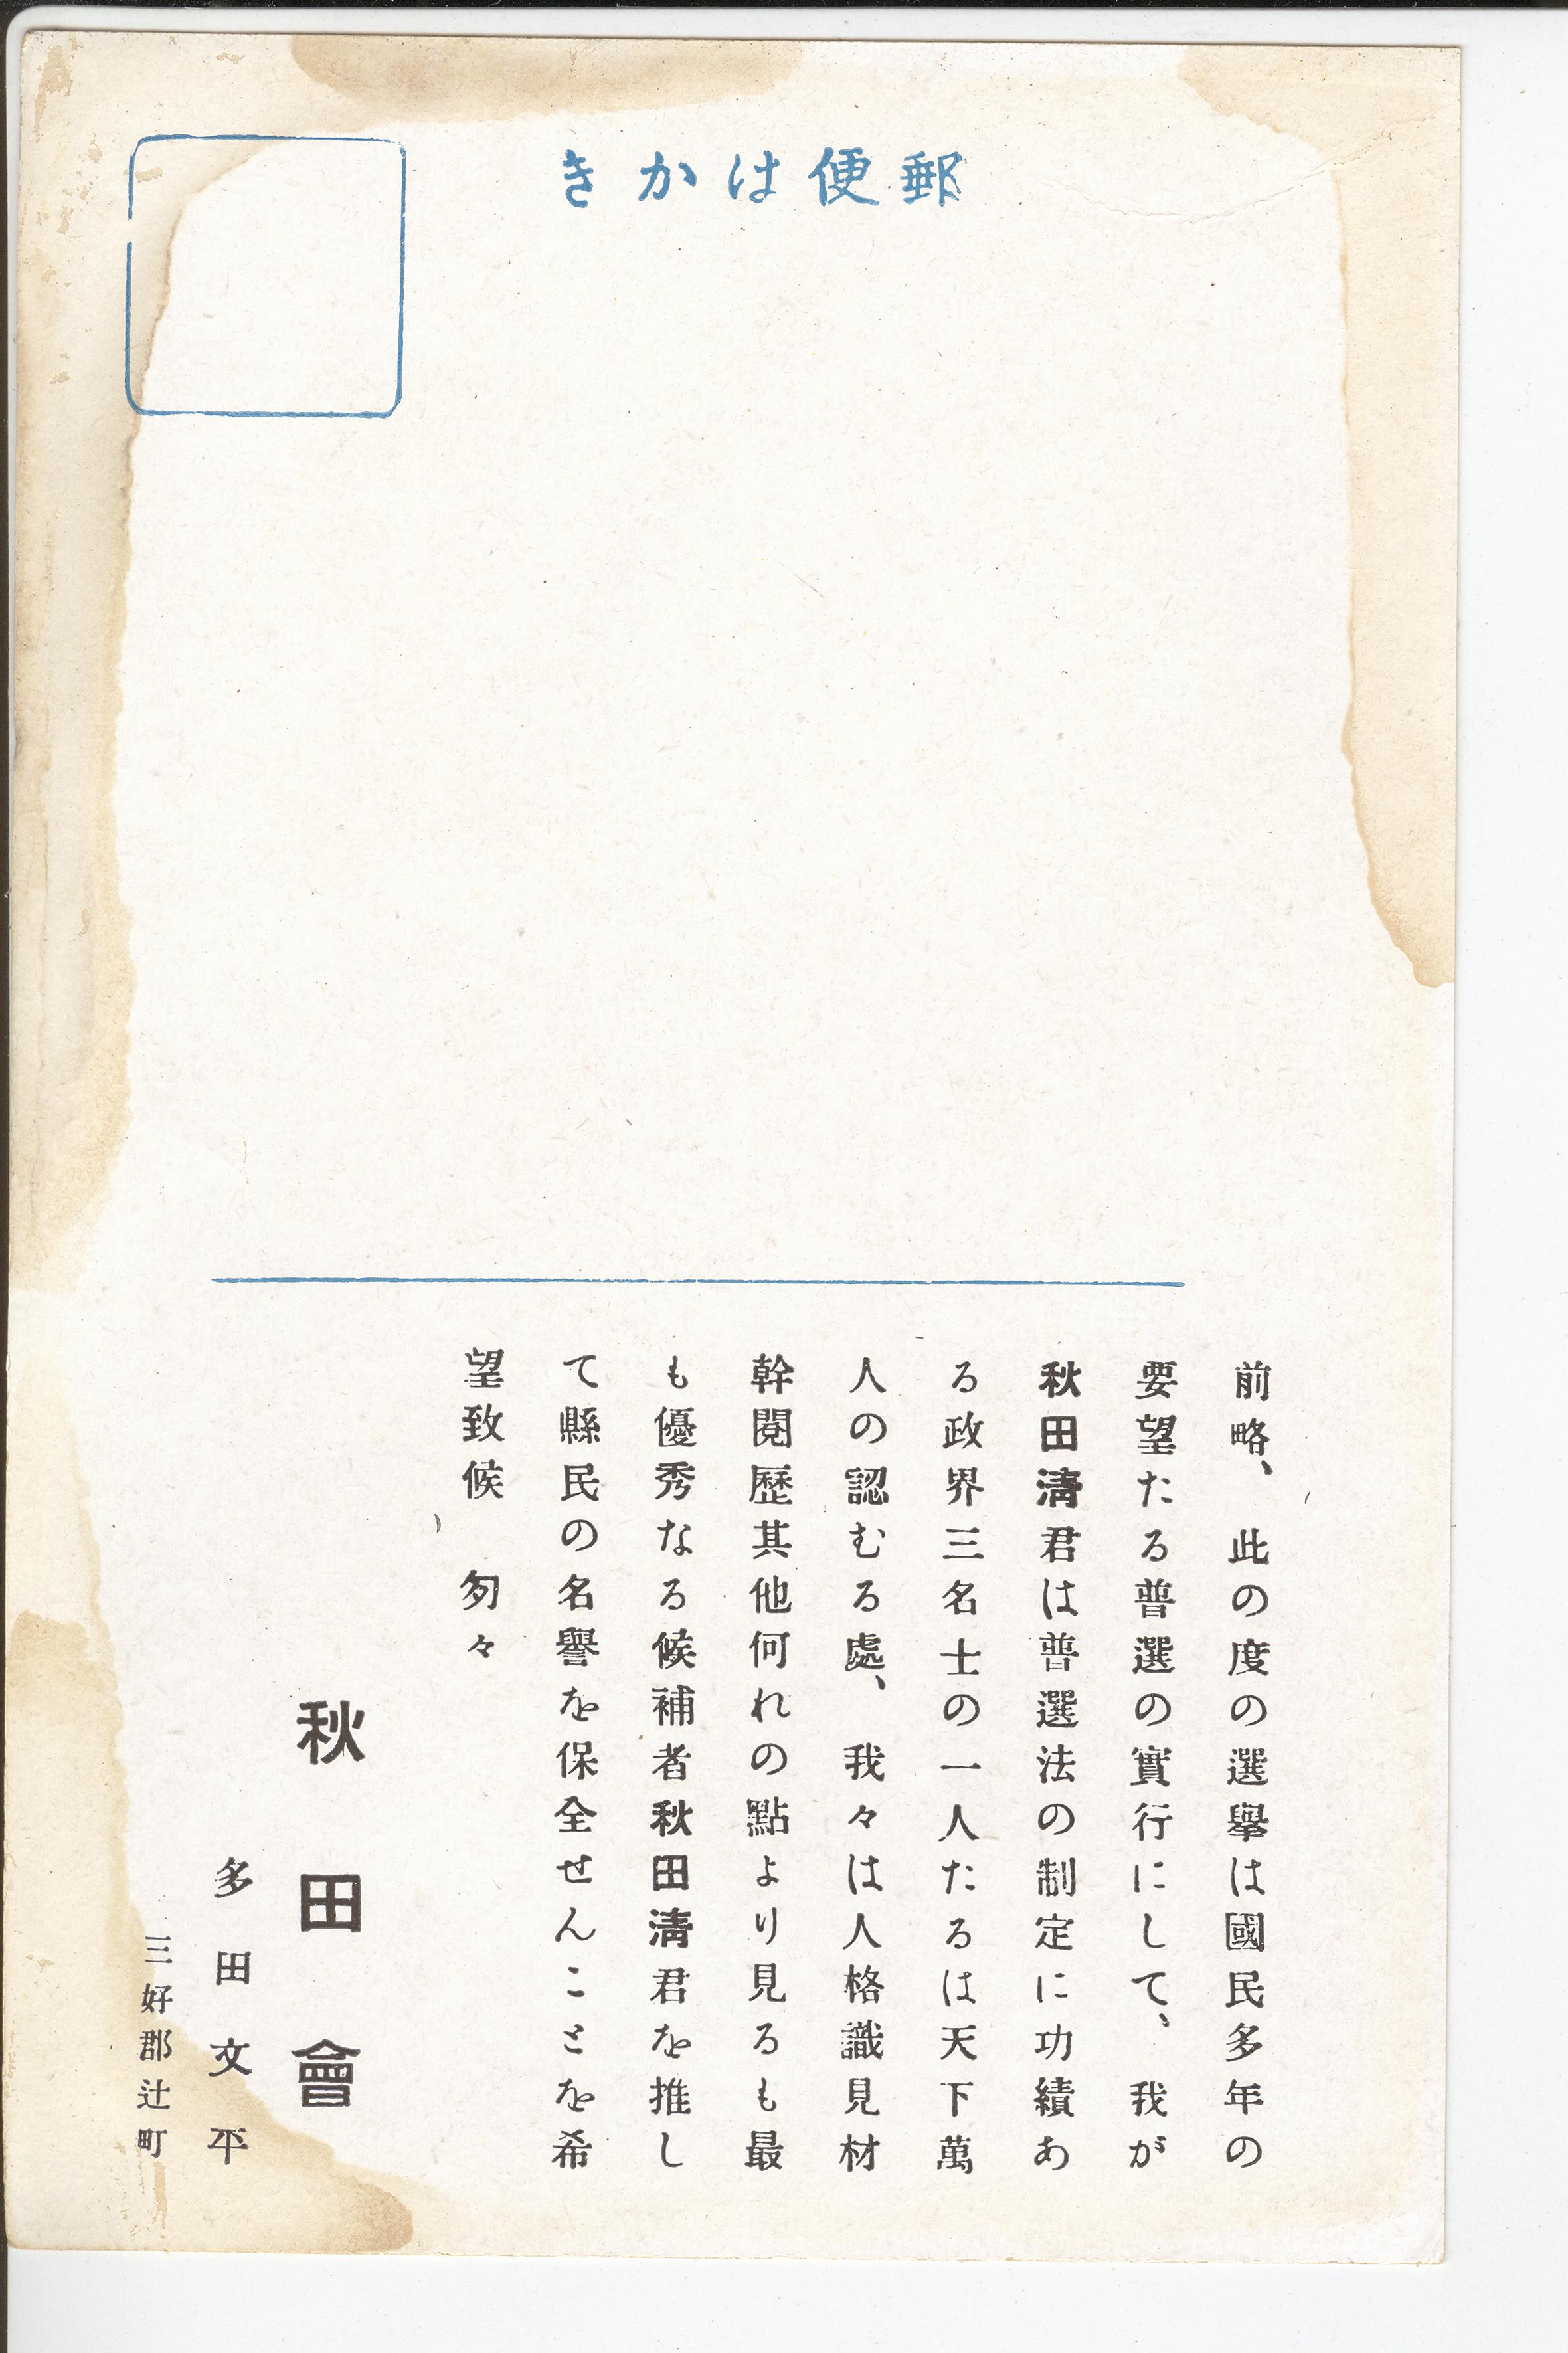 郵便はかき
前略、此の度の選擧は國民多年の
要望たる普選の實行にして、我が
秋田清君は普選法の制定に功績あ
る政界三名士の一人たるは天下萬
人の認むる處、我々は人格識見材
幹閲歷其他何れの點より見るも最
も優秀なる候補者秋田清君を推し
て縣民の名譽を保全せんことを希
望致候　匇々
秋田會
多田文平
三好郡辻町